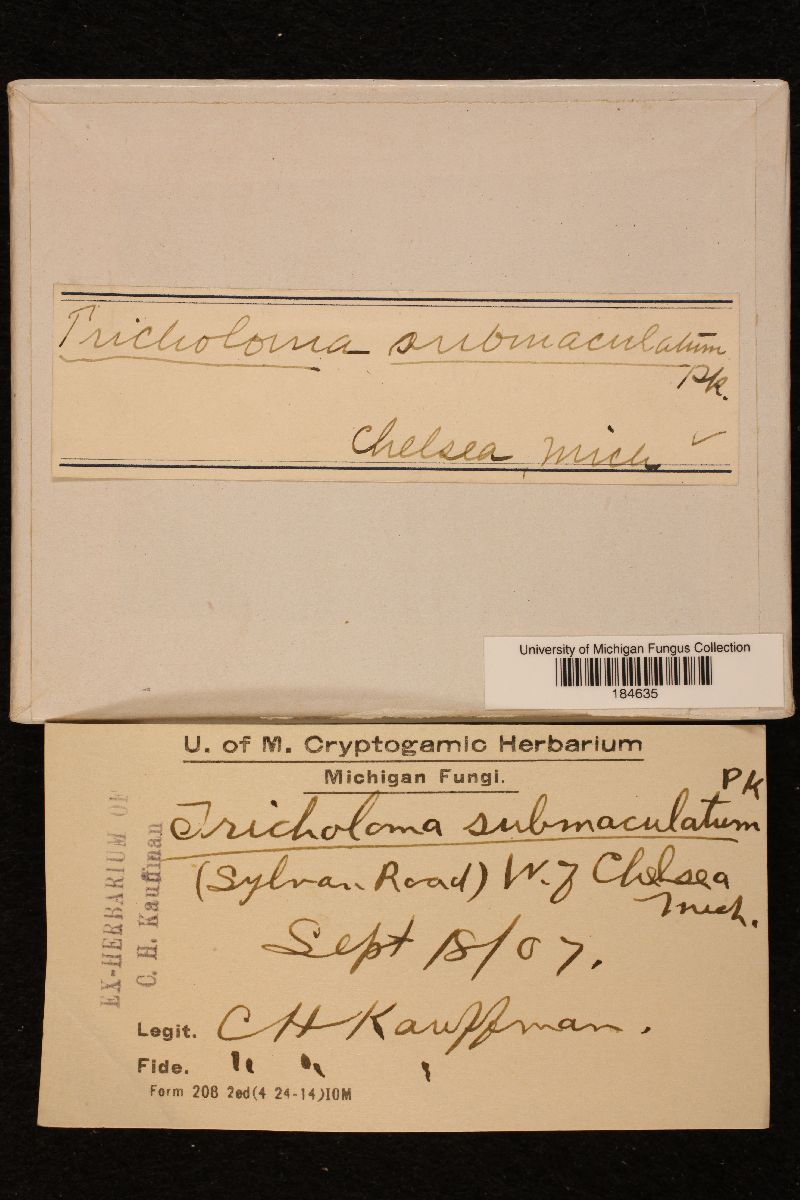 Tricholoma submaculatum
Pk.
Chelsea, Mich ✓
University of Michigan Fungus Collection
184635
U. of M. Cryptogamic Herbarium
Michigan Fungi.
PK
Tricholoma submaculatum
(Sylvan Road) W. of Chelsea
Mich.
Sept 18/07.
EX-HERBARIUM OF
C. H. Kauffman
Legit. C H Kauffman.
Fide. " " "
Form 208 2ed(4 24-14)10M